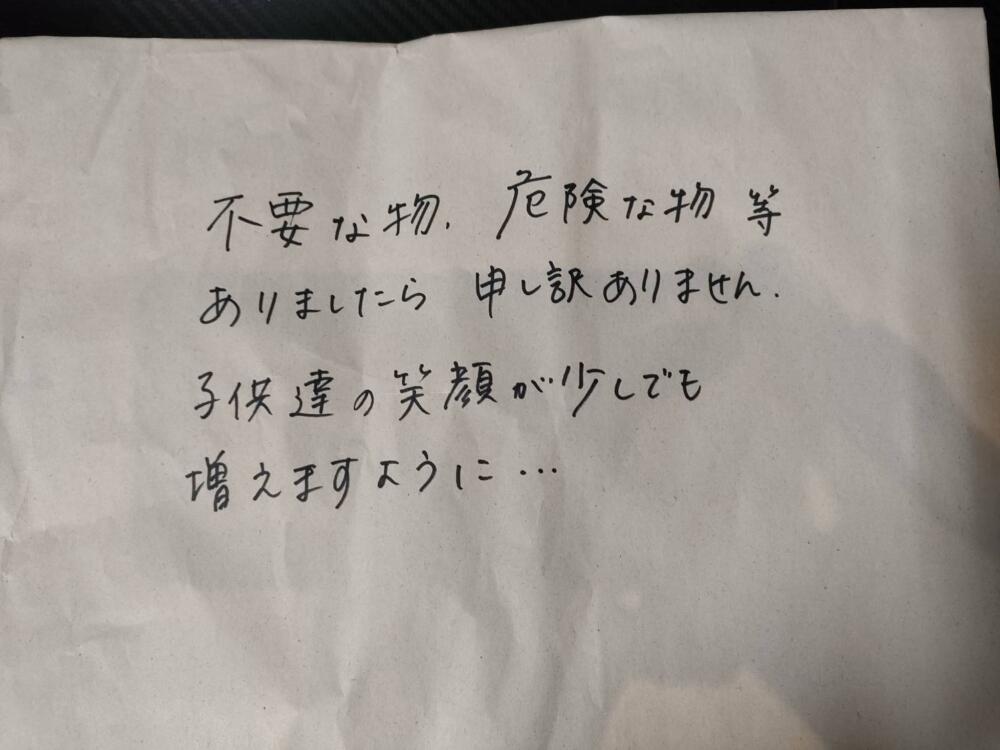 不要な物、危険な物 等
ありましたら 申し訳ありません.
子供達の笑顔が少しでも
増えますように…